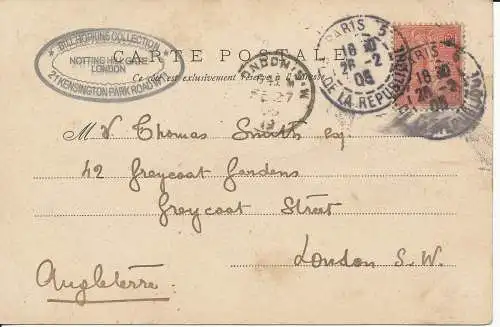 BILL HOPKINS COLLECTION
NOTTING HILL GATE
LONDON
21 KENSINGTON PARK ROAD W
CARTE POSTALE
Ce côté est exclusivement réservé à l'adresse
LONDON S.W
FE 27
05
PARIS
18 30
26-2
05
DE LA REPUBLIQUE
PARIS
18 30
26-2
05
Mr Thomas Smith esq.
42 Greycoat Gardens
Greycoat Street
London S.W.
Angleterre.